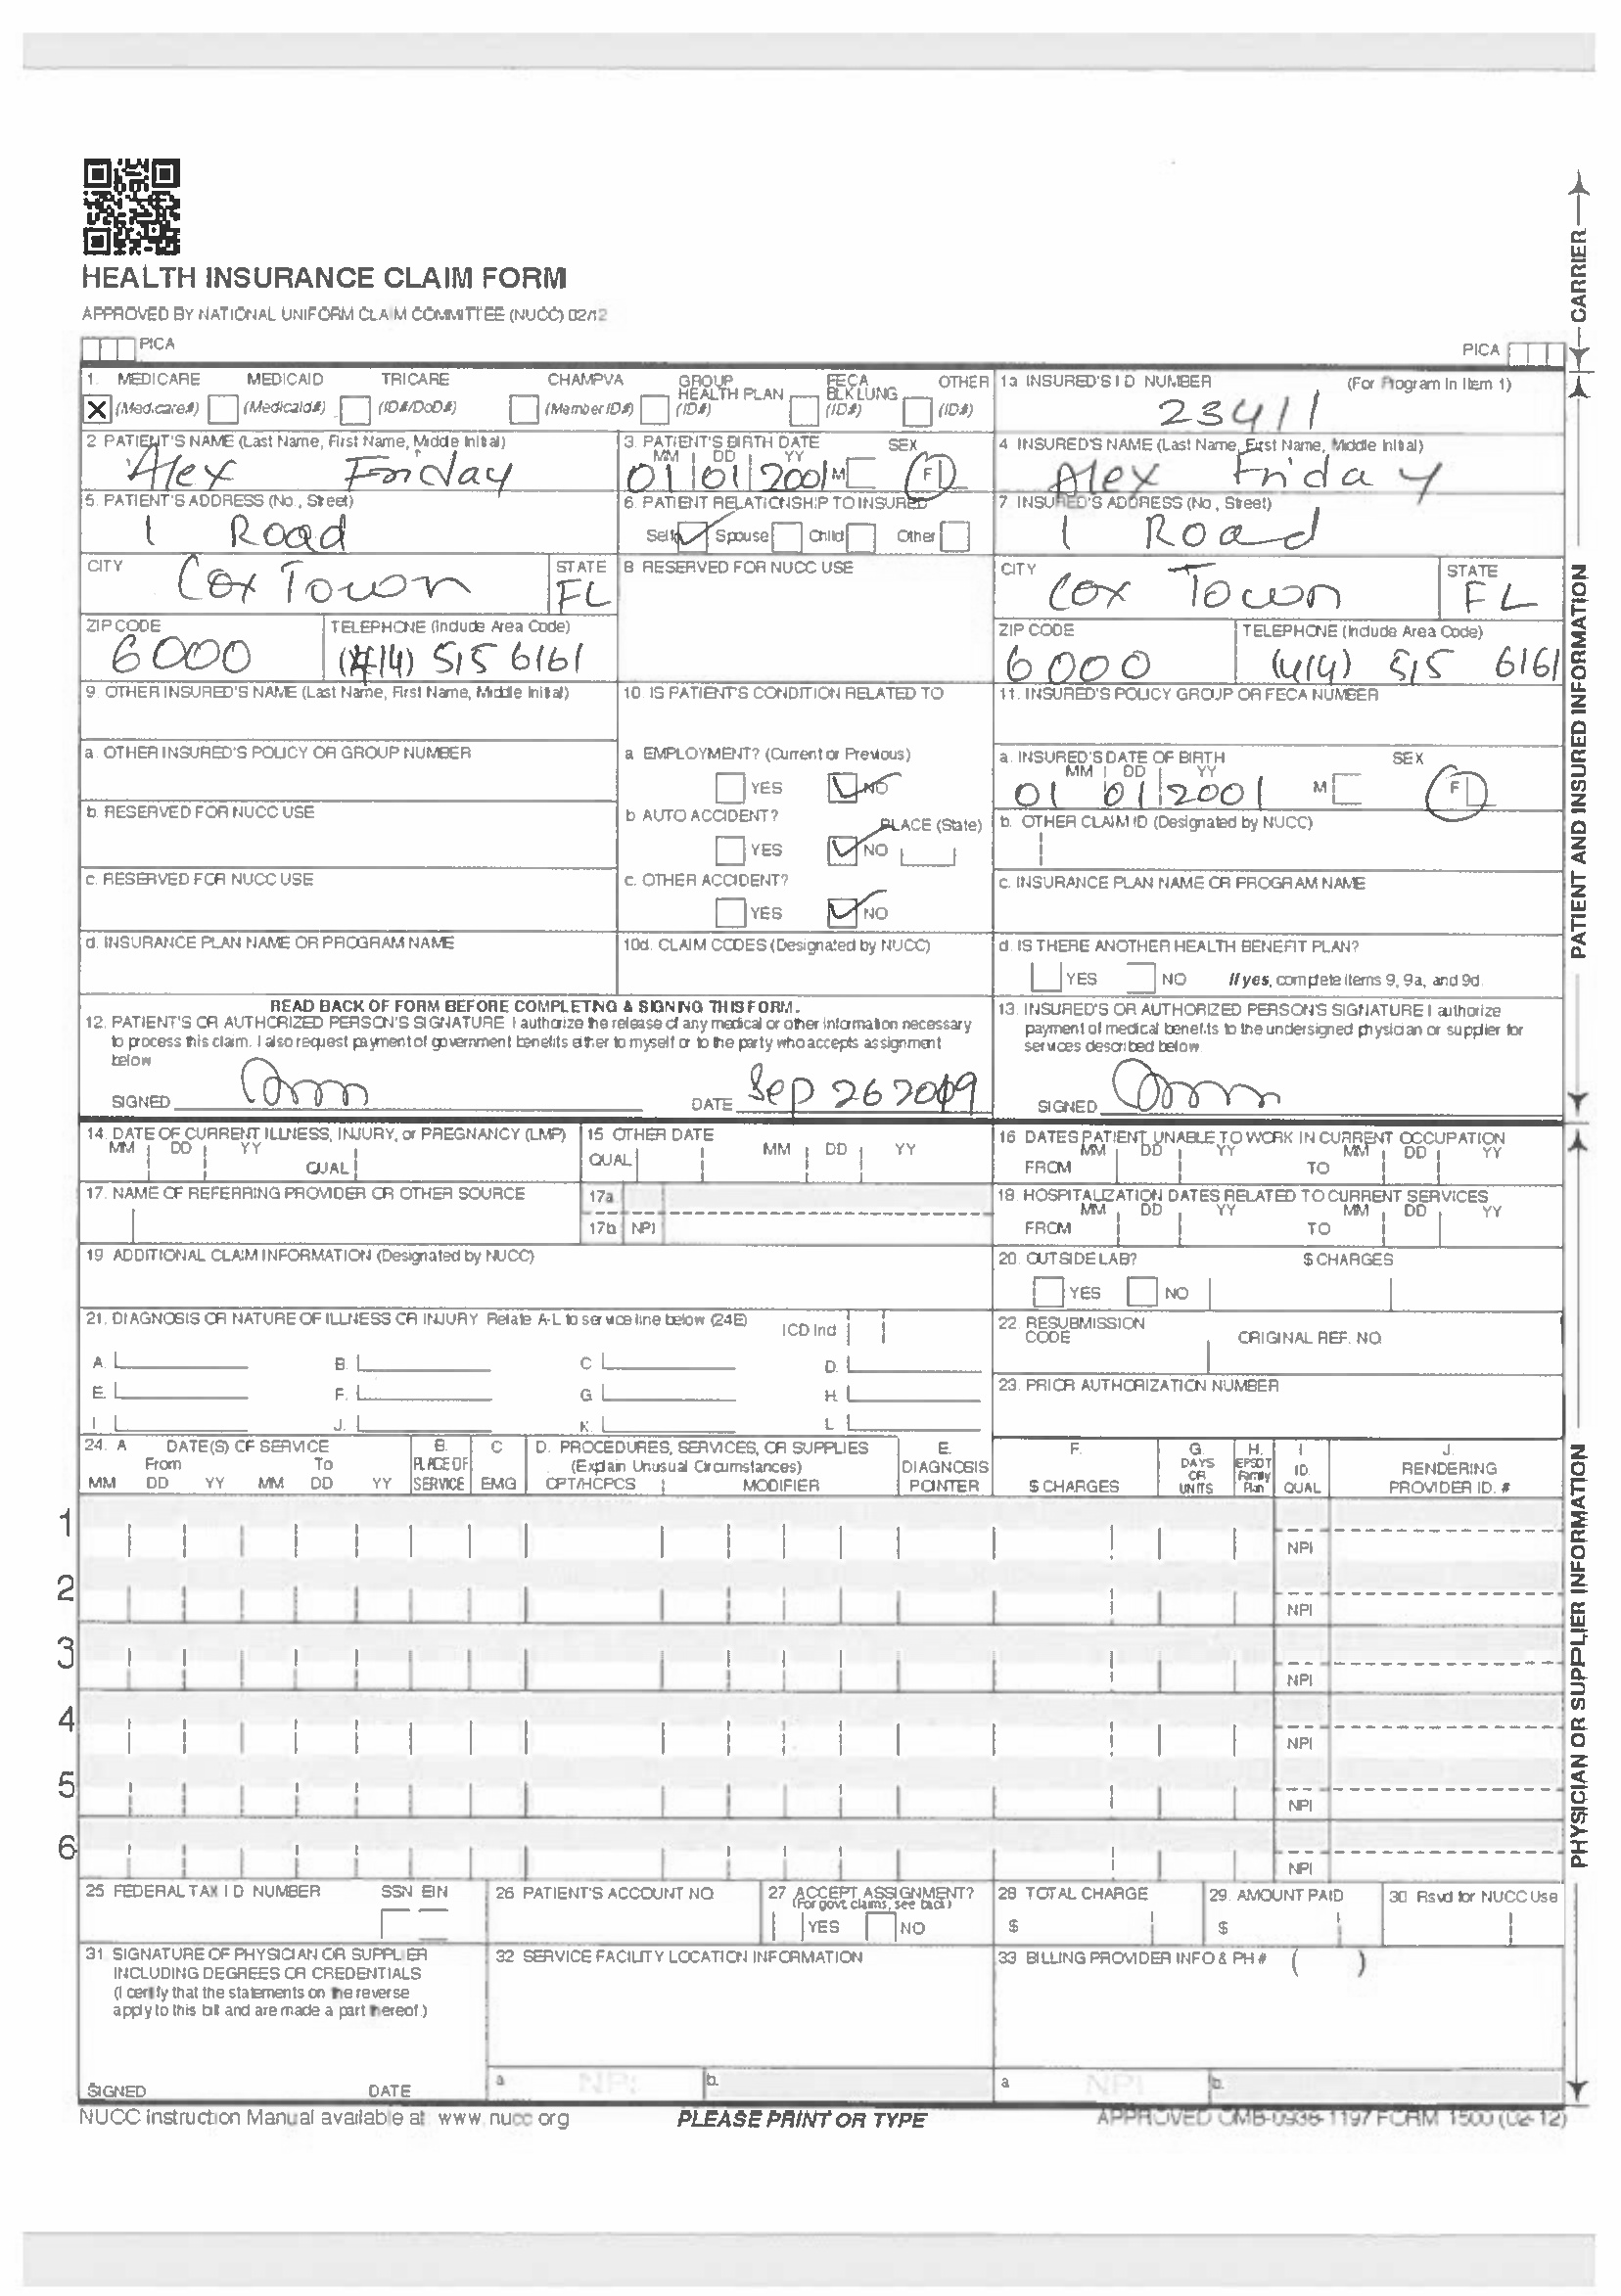 HEALTH INSURANCE CLAIM FORM
APPROVED BY NATIONAL UNIFORM CLAIM COMMITTEE (NUCC) 02/12
PICA
PICA
CARRIER
1. MEDICARE MEDICAID TRICARE CHAMPVA GROUP HEALTH PLAN FECA BLK LUNG OTHER
(Medicare#) (Medicaid#) (ID#/DoD#) (Member ID#) (ID#) (ID#) (ID#)
1a INSURED'S I D NUMBER (For Program in Item 1)
23411
2 PATIENT'S NAME (Last Name, First Name, Middle Initial)
Alex Friday
3. PATIENT'S BIRTH DATE SEX
MM DD YY
01 01 2001 M F
4 INSURED'S NAME (Last Name, First Name, Middle Initial)
Alex Friday
5. PATIENT'S ADDRESS (No., Street)
1 Road
6. PATIENT RELATIONSHIP TO INSURED
Self Spouse Child Other
7. INSURED'S ADDRESS (No., Street)
1 Road
CITY
Cox Town
STATE
FL
8 RESERVED FOR NUCC USE
CITY
Cox Town
STATE
FL
ZIP CODE
6000
TELEPHONE (Include Area Code)
(414) 515 6161
ZIP CODE
6000
TELEPHONE (Include Area Code)
(414) 515 6161
9. OTHER INSURED'S NAME (Last Name, First Name, Middle Initial)
10 IS PATIENT'S CONDITION RELATED TO
11. INSURED'S POLICY GROUP OR FECA NUMBER
a. OTHER INSURED'S POLICY OR GROUP NUMBER
a EMPLOYMENT? (Current or Previous)
YES NO
a. INSURED'S DATE OF BIRTH SEX
MM DD YY
01 01 2001 M F
b. RESERVED FOR NUCC USE
b AUTO ACCIDENT? PLACE (State)
YES NO
b. OTHER CLAIM ID (Designated by NUCC)
c. RESERVED FOR NUCC USE
c. OTHER ACCIDENT?
YES NO
c. INSURANCE PLAN NAME OR PROGRAM NAME
d. INSURANCE PLAN NAME OR PROGRAM NAME
10d. CLAIM CODES (Designated by NUCC)
d. IS THERE ANOTHER HEALTH BENEFIT PLAN?
YES NO If yes, complete items 9, 9a, and 9d.
READ BACK OF FORM BEFORE COMPLETING & SIGNING THIS FORM.
12. PATIENT'S OR AUTHORIZED PERSON'S SIGNATURE I authorize the release of any medical or other information necessary
to process this claim. I also request payment of government benefits either to myself or to the party who accepts assignment
below
SIGNED
DATE Sep 26 2019
13. INSURED'S OR AUTHORIZED PERSON'S SIGNATURE I authorize
payment of medical benefits to the undersigned physician or supplier for
services described below.
SIGNED
PATIENT AND INSURED INFORMATION
14. DATE OF CURRENT ILLNESS, INJURY, or PREGNANCY (LMP)
MM DD YY QUAL
15 OTHER DATE
QUAL MM DD YY
16 DATES PATIENT UNABLE TO WORK IN CURRENT OCCUPATION
MM DD YY MM DD YY
FROM TO
17. NAME OF REFERRING PROVIDER OR OTHER SOURCE
17a
17b NPI
18. HOSPITALIZATION DATES RELATED TO CURRENT SERVICES
MM DD YY MM DD YY
FROM TO
19 ADDITIONAL CLAIM INFORMATION (Designated by NUCC)
20. OUTSIDE LAB? $ CHARGES
YES NO
21. DIAGNOSIS OR NATURE OF ILLNESS OR INJURY Relate A-L to service line below (24E) ICD Ind
A. B. C D.
E. F. G H.
I J. K. L
22. RESUBMISSION
CODE ORIGINAL REF. NO
23. PRIOR AUTHORIZATION NUMBER
24. A DATE(S) OF SERVICE B. C D. PROCEDURES, SERVICES, OR SUPPLIES E. F. G. H. I J.
From To PLACE OF (Explain Unusual Circumstances) DIAGNOSIS DAYS OR UNITS EPSDT Family Plan ID. RENDERING
MM DD YY MM DD YY SERVICE EMG CPT/HCPCS MODIFIER POINTER $ CHARGES QUAL PROVIDER ID. #
1 NPI
2 NPI
3 NPI
4 NPI
5 NPI
6 NPI
25 FEDERAL TAX I D NUMBER SSN EIN
26 PATIENT'S ACCOUNT NO
27 ACCEPT ASSIGNMENT?
(For govt claims, see back)
YES NO
28 TOTAL CHARGE
$
29. AMOUNT PAID
$
30 Rsvd for NUCC Use
31. SIGNATURE OF PHYSICIAN OR SUPPLIER
INCLUDING DEGREES OR CREDENTIALS
(I certify that the statements on the reverse
apply to this bill and are made a part thereof.)
SIGNED DATE
32 SERVICE FACILITY LOCATION INFORMATION
a NPI b.
33 BILLING PROVIDER INFO & PH # ( )
a NPI b.
PHYSICIAN OR SUPPLIER INFORMATION
NUCC Instruction Manual available at www.nucc.org
PLEASE PRINT OR TYPE
APPROVED OMB-0938-1197 FORM 1500 (02-12)